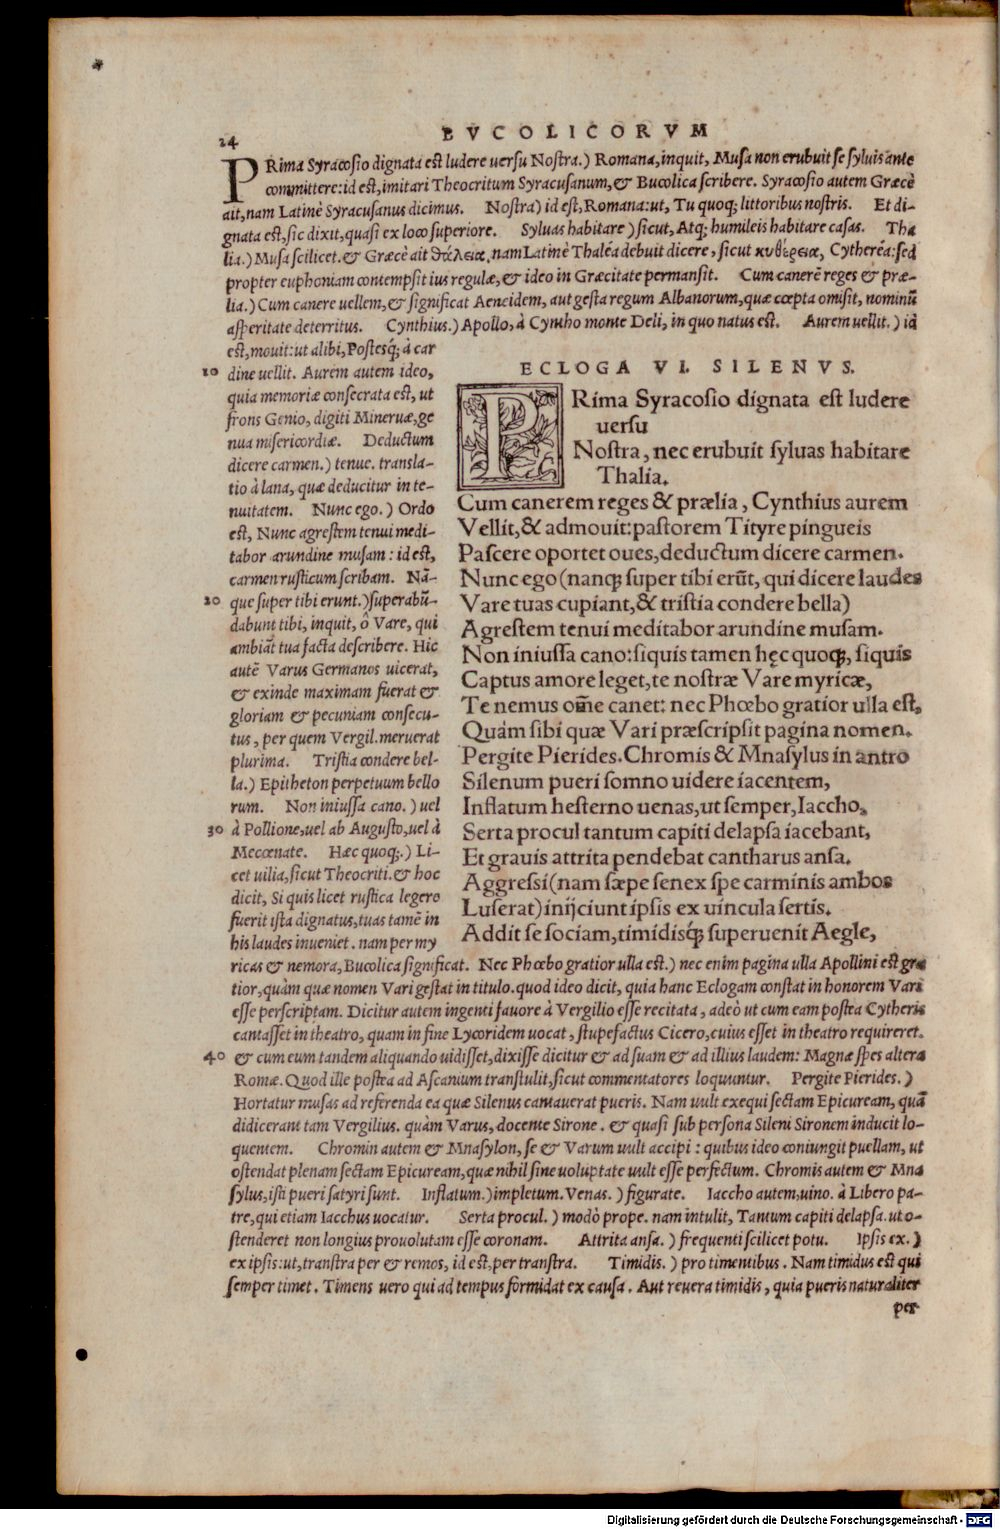 24
BVCOLICORVM
PRima Syracosio dignata est ludere uersu Nostra.) Romana, inquit, Musa non erubuit se syluis ante
committere: id est, imitari Theocritum Syracusanum, & Bucolica scribere. Syracosio autem Græcè
ait, nam Latinè Syracusanus dicimus. Nostra) id est, Romana: ut, Tu quoq; littoribus nostris. Et di-
gnata est, sic dixit, quasi ex loco superiore. Syluas habitare) sicut, Atq; humileis habitare casas. Tha
lia.) Musa scilicet. & Græcè ait θάλεια, nam Latinè Thaléa debuit dicere, sicut κυθέρεια, Cytheréa: sed
propter euphoniam contempsit ius regulæ, & ideo in Græcitate permansit. Cum canerē reges & præ-
lia.) Cum canere uellem, & significat Aeneidem, aut gesta regum Albanorum, quæ cœpta omisit, nominū
asperitate deterritus. Cynthius.) Apollo, à Cyntho monte Deli, in quo natus est. Aurem uellit.) id
est, mouit: ut alibi, Postesq́; à car
10 dine uellit. Aurem autem ideo,
quia memoriæ consecrata est, ut
frons Genio, digiti Mineruæ, ge
nua misericordiæ. Deductum
dicere carmen.) tenue. transla-
tio à lana, quæ deducitur in te-
nuitatem. Nunc ego.) Ordo
est, Nunc agrestem tenui medi-
tabor arundine musam: id est,
carmen rusticum scribam. Nā-
20 que super tibi erunt.) superabū-
dabunt tibi, inquit, ô Vare, qui
ambiāt tua facta describere. Hic
autē Varus Germanos uicerat,
& exinde maximam fuerat &
gloriam & pecuniam consecu-
tus, per quem Vergil. meruerat
plurima. Tristia condere bel-
la.) Epitheton perpetuum bello
rum. Non iniussa cano.) uel
30 à Pollione, uel ab Augusto, uel à
Mecœnate. Hæc quoq;.) Li-
cet uilia, sicut Theocriti. & hoc
dicit, Si quis licet rustica legere
fuerit ista dignatus, tuas tamē in
his laudes inueniet. nam per my
ECLOGA VI. SILENVS.
PRima Syracosio dignata est ludere
uersu
Nostra, nec erubuit syluas habitare
Thalia.
Cum canerem reges & prælia, Cynthius aurem
Vellit, & admouit: pastorem Tityre pingueis
Pascere oportet oues, deductum dicere carmen.
Nunc ego (nanq; super tibi erūt, qui dicere laudes
Vare tuas cupiant, & tristia condere bella)
Agrestem tenui meditabor arundine musam.
Non iniussa cano: siquis tamen hęc quoq;, siquis
Captus amore leget, te nostræ Vare myricæ,
Te nemus om̄e canet: nec Phœbo gratior ulla est,
Quàm sibi quæ Vari præscripsit pagina nomen.
Pergite Pierides. Chromis & Mnasylus in antro
Silenum pueri somno uidere iacentem,
Inflatum hesterno uenas, ut semper, Iaccho.
Serta procul tantum capiti delapsa iacebant,
Et grauis attrita pendebat cantharus ansa.
Aggressi (nam sæpe senex spe carminis ambos
Luserat) inijciunt ipsis ex uincula sertis.
Addit se sociam, timidisq́; superuenit Aegle,
ricas & nemora, Bucolica significat. Nec Phœbo gratior ulla est.) nec enim pagina ulla Apollini est gra
tior, quàm quæ nomen Vari gestat in titulo. quod ideo dicit, quia hanc Eclogam constat in honorem Vari
esse perscriptam. Dicitur autem ingenti fauore à Vergilio esse recitata, adeò ut cum eam postea Cytheris
cantasset in theatro, quam in fine Lycoridem uocat, stupefactus Cicero, cuius esset in theatro requireret.
40 & cum eum tandem aliquando uidisset, dixisse dicitur & ad suam & ad illius laudem: Magnæ spes altera
Romæ. Quod ille postea ad Ascanium transtulit, sicut commentatores loquuntur. Pergite Pierides.)
Hortatur musas ad referenda ea quæ Silenus cantauerat pueris. Nam uult exequi sectam Epicuream, quā
didicerant tam Vergilius. quàm Varus, docente Sirone. & quasi sub persona Sileni Sironem inducit lo-
quentem. Chromin autem & Mnasylon, se & Varum uult accipi: quibus ideo coniungit puellam, ut
ostendat plenam sectam Epicuream, quæ nihil sine uoluptate uult esse perfectum. Chromis autem & Mna
sylus, isti pueri satyri sunt. Inflatum.) impletum. Venas.) figurate. Iaccho autem, uino. à Libero pa-
tre, qui etiam Iacchus uocatur. Serta procul.) modò prope. nam intulit, Tantum capiti delapsa. ut o-
stenderet non longius prouolutam esse coronam. Attrita ansa.) frequenti scilicet potu. Ipsis ex.)
ex ipsis: ut, transtra per & remos, id est, per transtra. Timidis.) pro timentibus. Nam timidus est qui
semper timet. Timens uero qui ad tempus formidat ex causa. Aut reuera timidis, quia pueris naturaliter
per
Digitalisierung gefördert durch die Deutsche Forschungsgemeinschaft - DFG